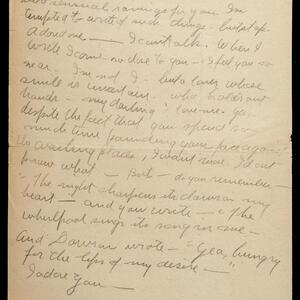 most sensual cravings for you. I'm
tempted to write of such things - but
adored me. — I can't talk. When I
write I come so close to you - I feel you so
near. I'm not I - but a lover whose
smile is uncertain, who holds out
hands - my darling! love me - yes,
despite the fact that you spend so
much time pounding your face against
the waiting places, I won't
know what — But - do you remember -
"The night sharpens its claws on my
heart — and you wrote — "The
whirlpool sings its song in me -
And Dowson wrote - "Yea, hungry
for the lips of my desire - "
I adore You —